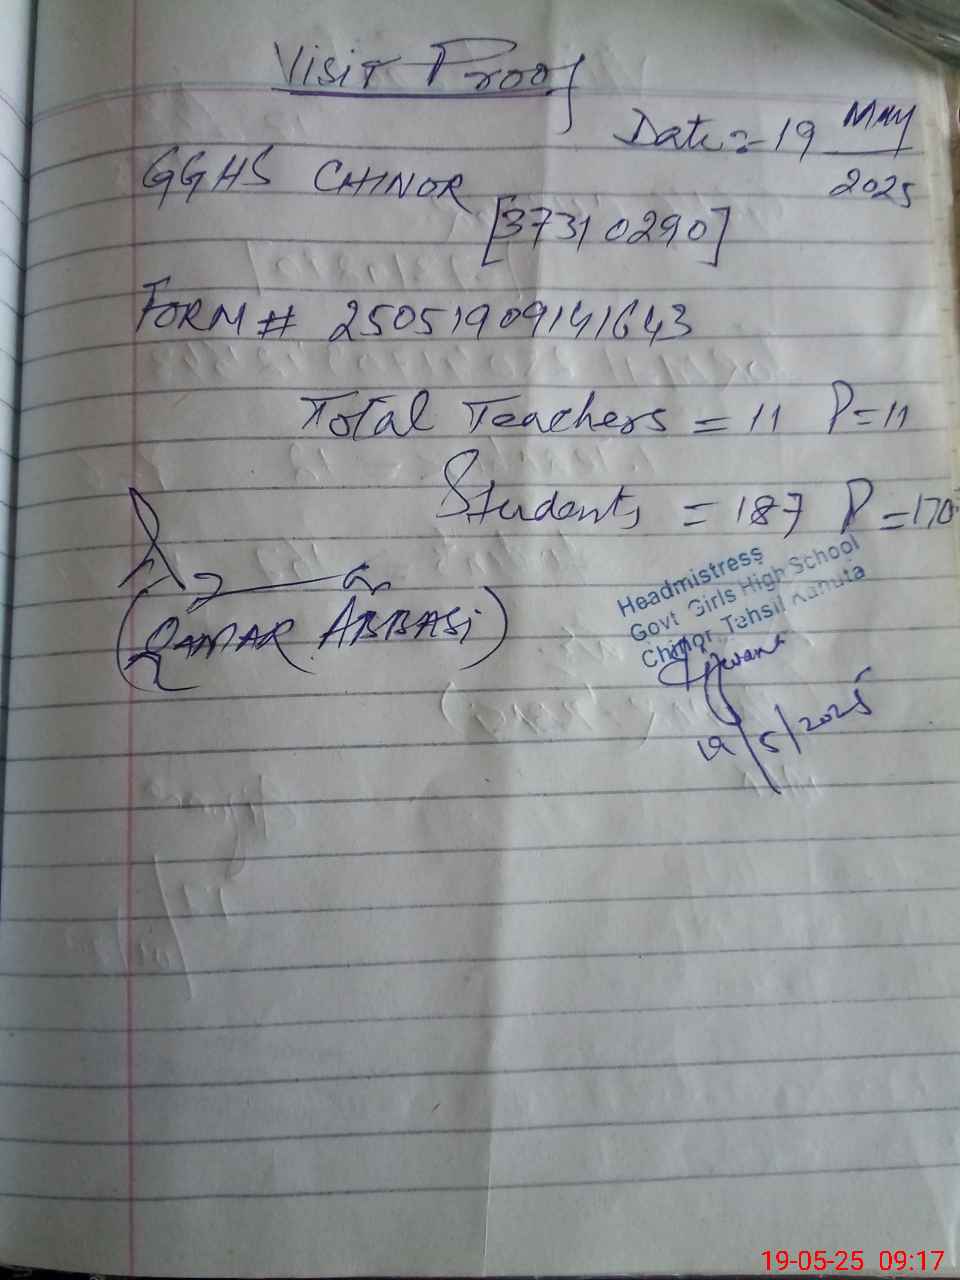 Visit Proof
Date:- 19 May
2025
GGHS CHINOR
[37310290]
FORM # 25051909141643
Total Teachers = 11 P=11
Students = 187 P=170
(QAMAR ABBASi)
Headmistress
Govt Girls High School
Chinor Tehsil Kahuta
19/5/2025
19-05-25 09:17